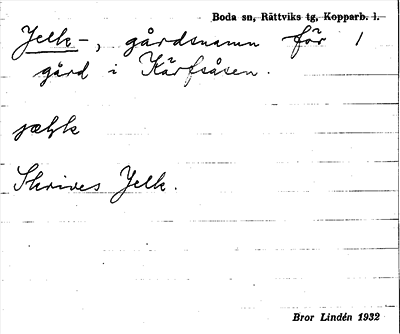 Boda sn, Rättviks tg, Kopparb. l.
Jelk-, gårdsnamn för 1
gård i Kärfsåsen.
Skrives Jelk.
Bror Lindén 1932